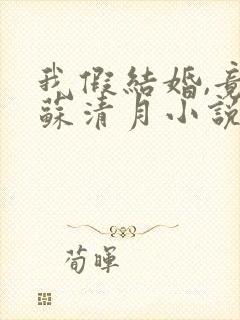 我假結婚,竟
蘇清月小說
荀暉